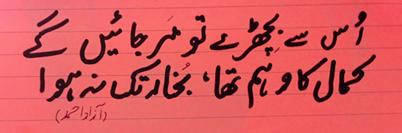 اُس سے بچھڑے تو مَر جائیں گے
کمال کا وہم تھا، بُخار تک نہ ہوا
(آزاد احمد)